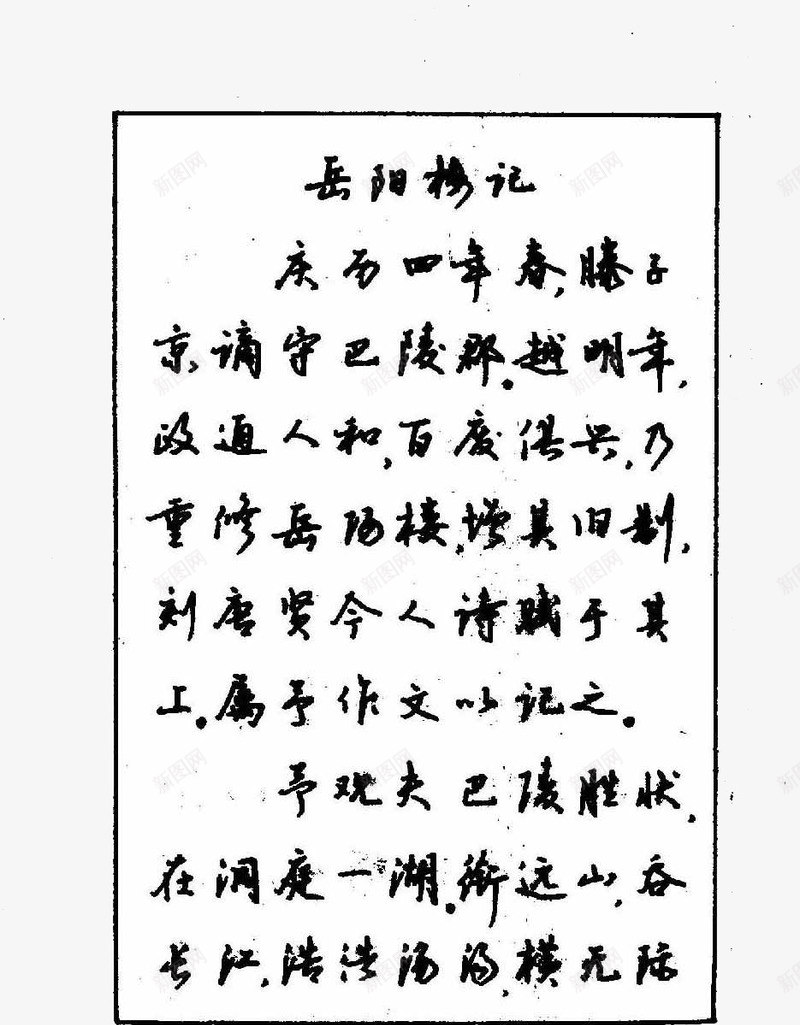 岳阳楼记
庆历四年春,滕子
京谪守巴陵郡。越明年,
政通人和,百废俱兴,乃
重修岳阳楼,增其旧制,
刻唐贤今人诗赋于其
上。属予作文以记之。
予观夫巴陵胜状,
在洞庭一湖。衔远山,吞
长江,浩浩汤汤,横无际
新图网